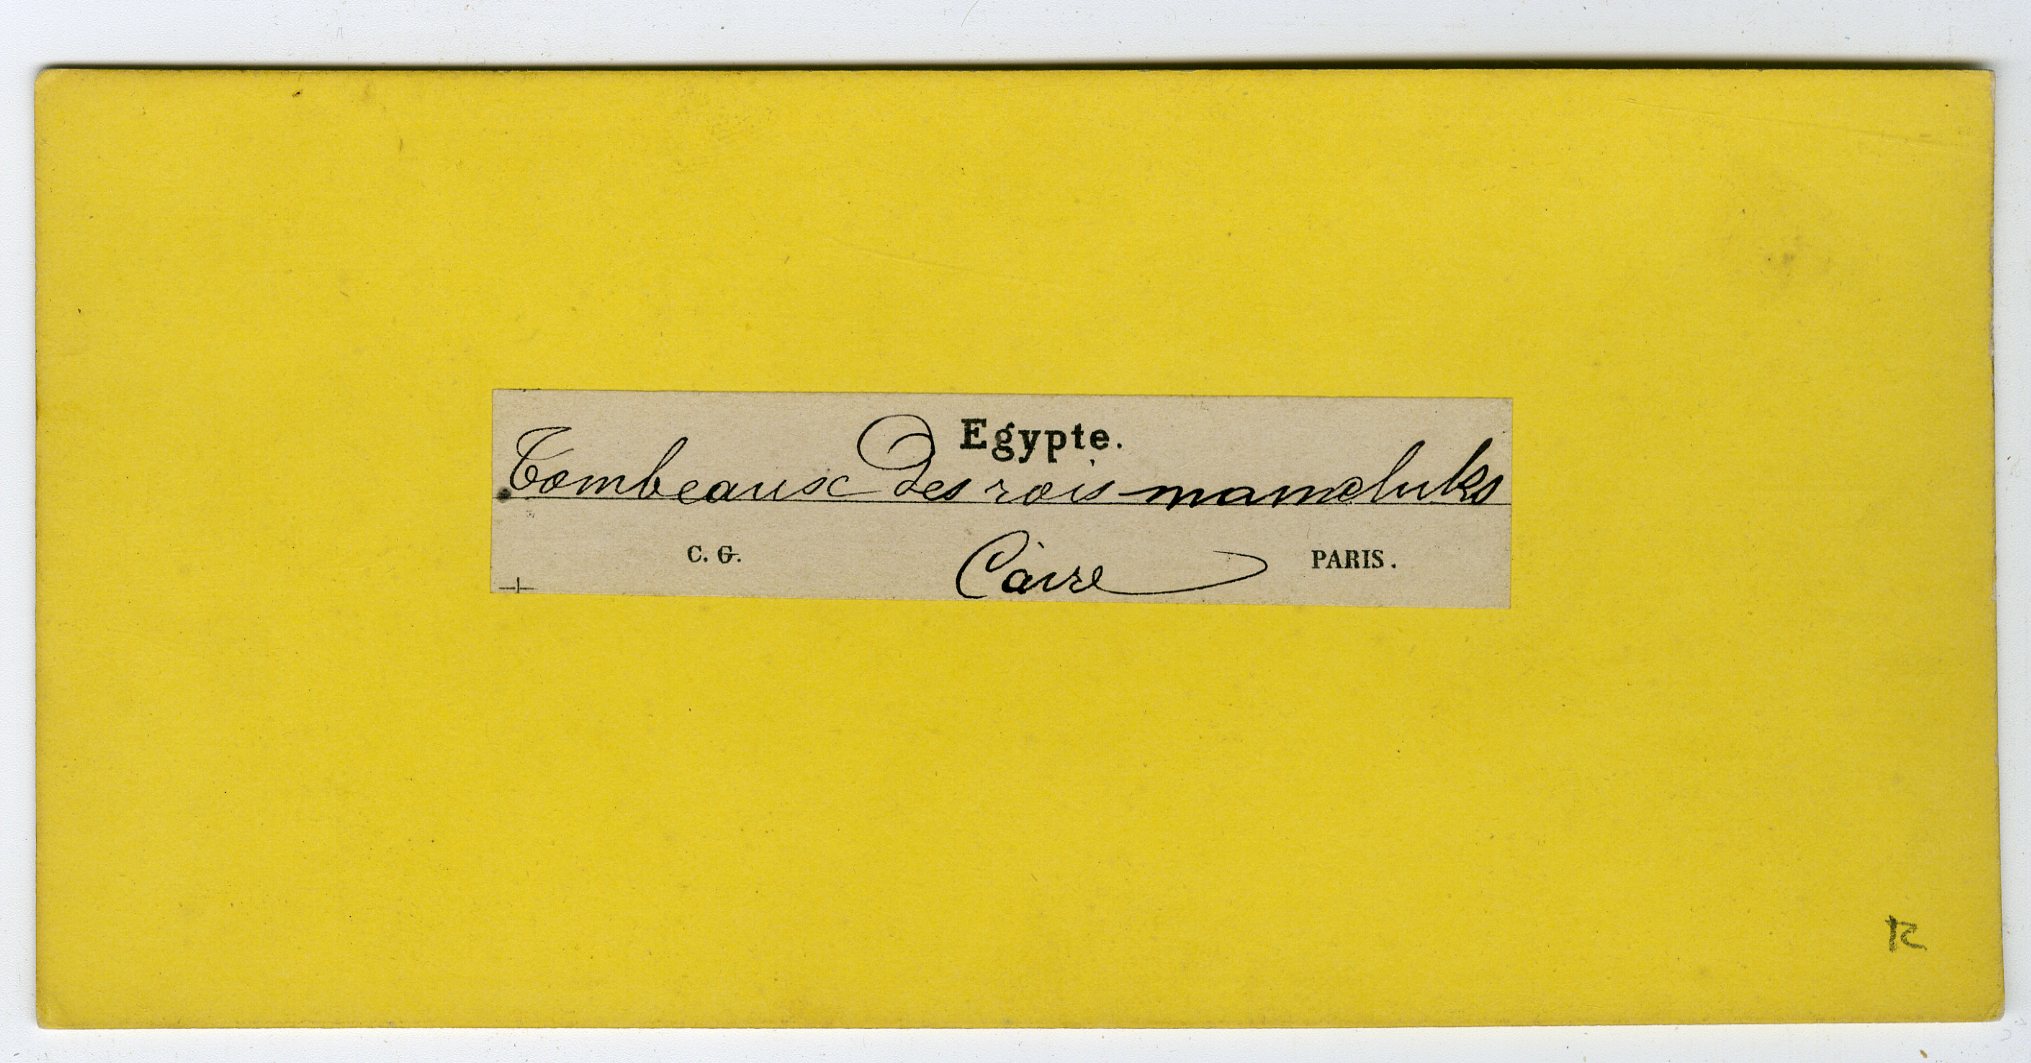 Egypte.
Tombeaux des rois mameluks
C. G. Caire PARIS.